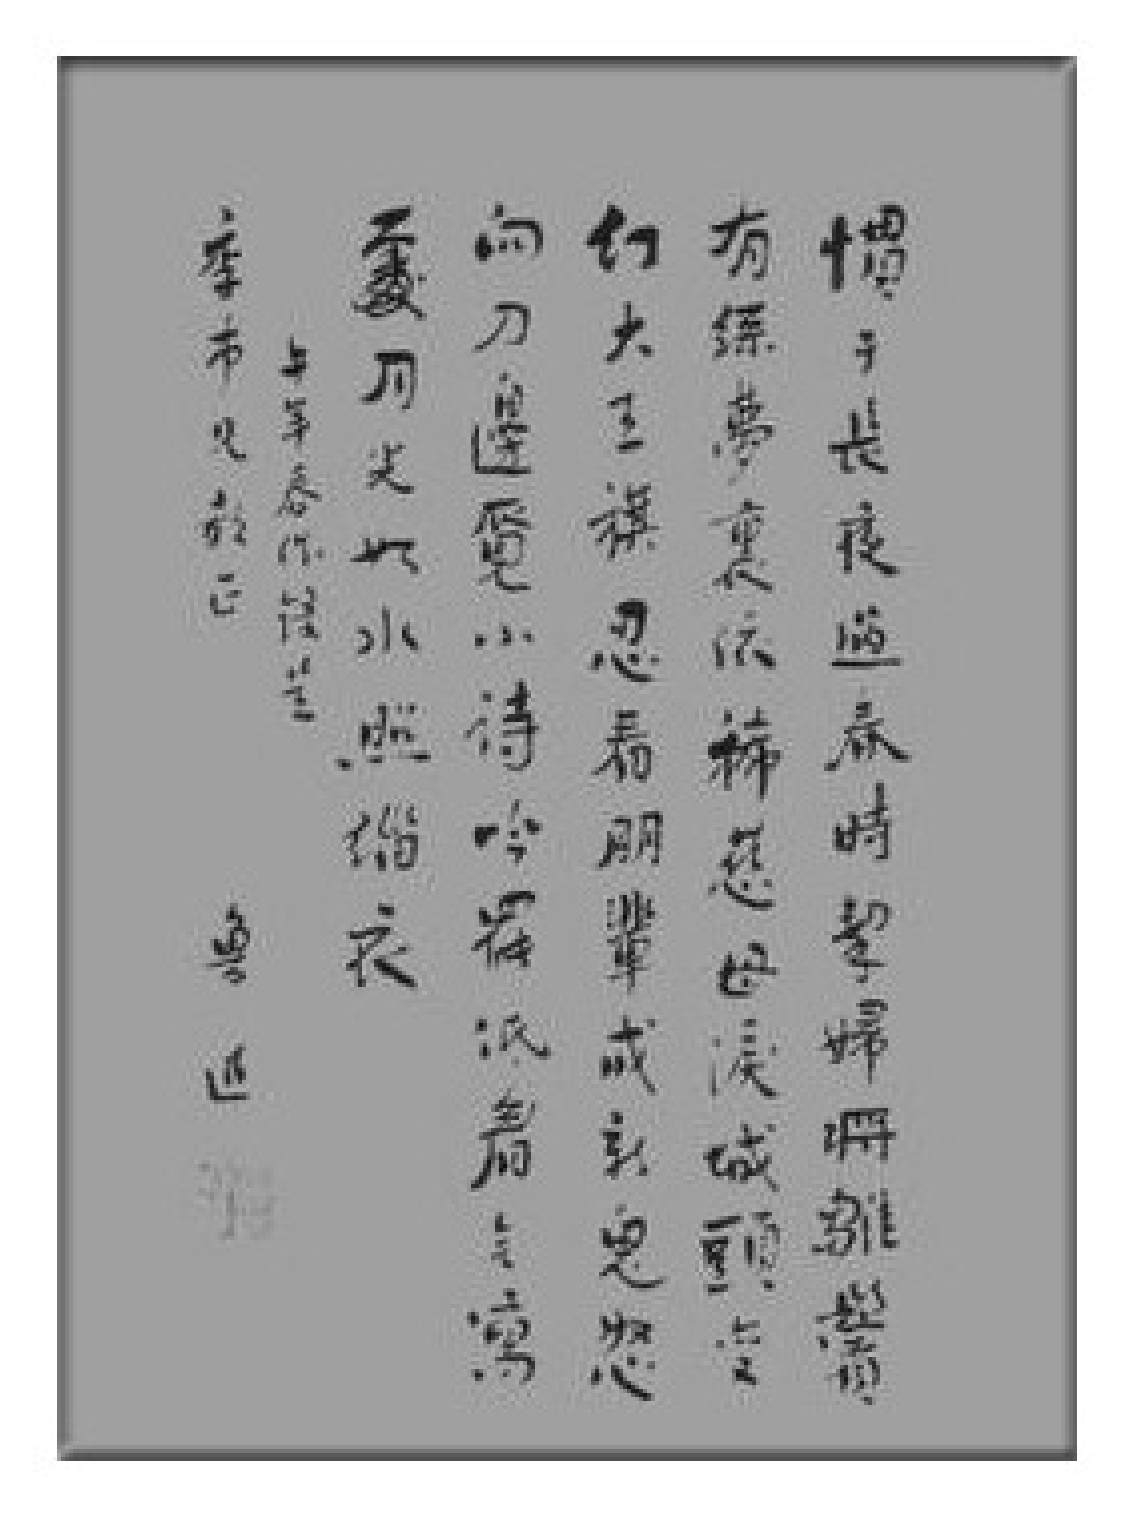 慣于長夜過春時挈婦將雛鬢
有絲夢裏依稀慈母淚城頭变
幻大王旗忍看朋輩成新鬼怒
向刀邊覓小詩吟罷低眉無寫
處月光如水照緇衣
午年春作録呈
季市兄教正
魯迅